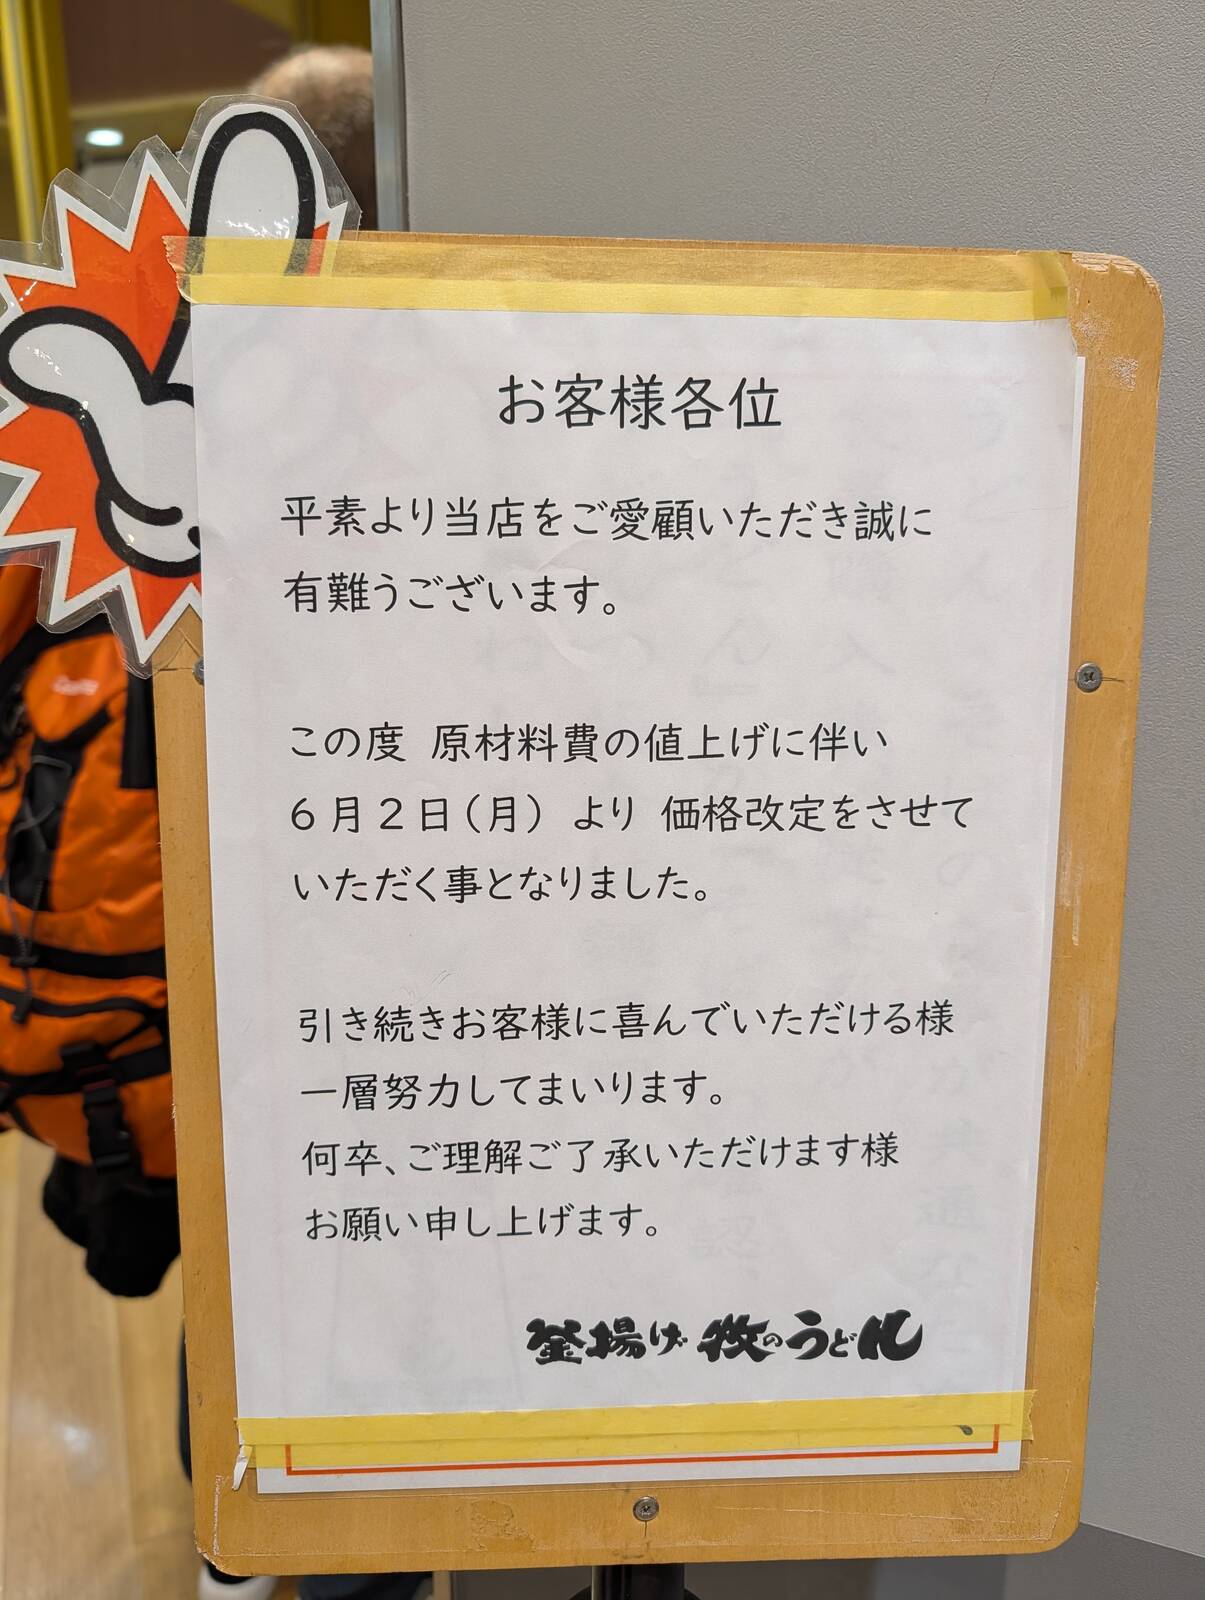 お客様各位
平素より当店をご愛顧いただき誠に
有難うございます。
この度 原材料費の値上げに伴い
6月2日(月) より 価格改定をさせて
いただく事となりました。
引き続きお客様に喜んでいただける様
一層努力してまいります。
何卒、ご理解ご了承いただけます様
お願い申し上げます。
釜揚げ 牧のうどん